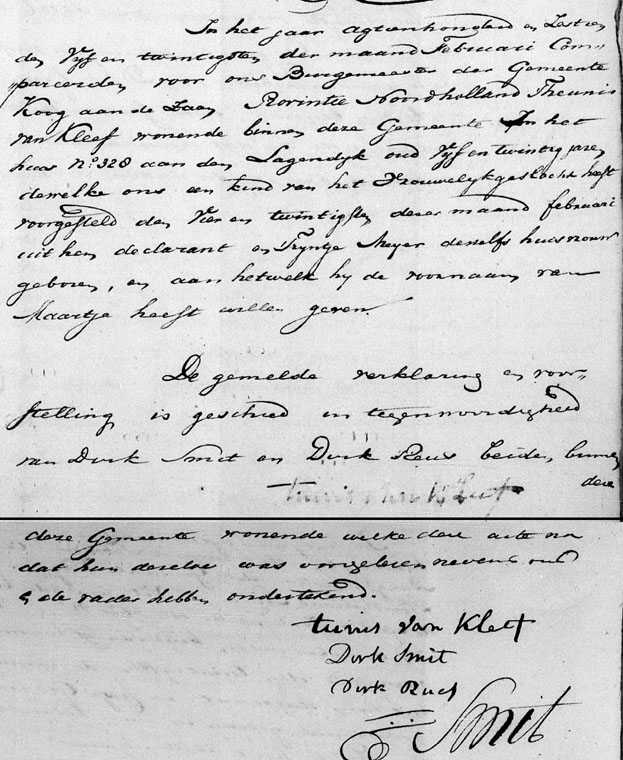 In het jaar agtienhonderd en Zestien
den Vyf en twintigsten der maand Februari Com-
pareerden voor ons Burgemeester der Gemeente
Koog aan de Zaan Provintie Noordholland Theunis
van Kleef wonende binnen deze Gemeente In het
huis N:o 328 aan den Lagendyk oud Vyf en twintig jaren
dewelke ons een kind van het Vrouwelyk geslacht heeft
voorgesteld den Vier en twintigsten dezer maand februari
uit hem declarant en Tryntje Meyer deszelfs huisvrouw
geboren, en aan hetwelk hy de voornaam van
Maartje heeft willen geven.
De gemelde verklaring en voor-
stelling is geschied in tegenwoordigheid
van Dirk Smit en Dirk beiden binnen
deze
tunis van Kleef
deze Gemeente wonende welke deze acte na
dat hun dezelve was voorgelezen nevens ons
& de vader hebben ondertekend.
tunis van Kleef
Dirk Smit
Dirk
Smit